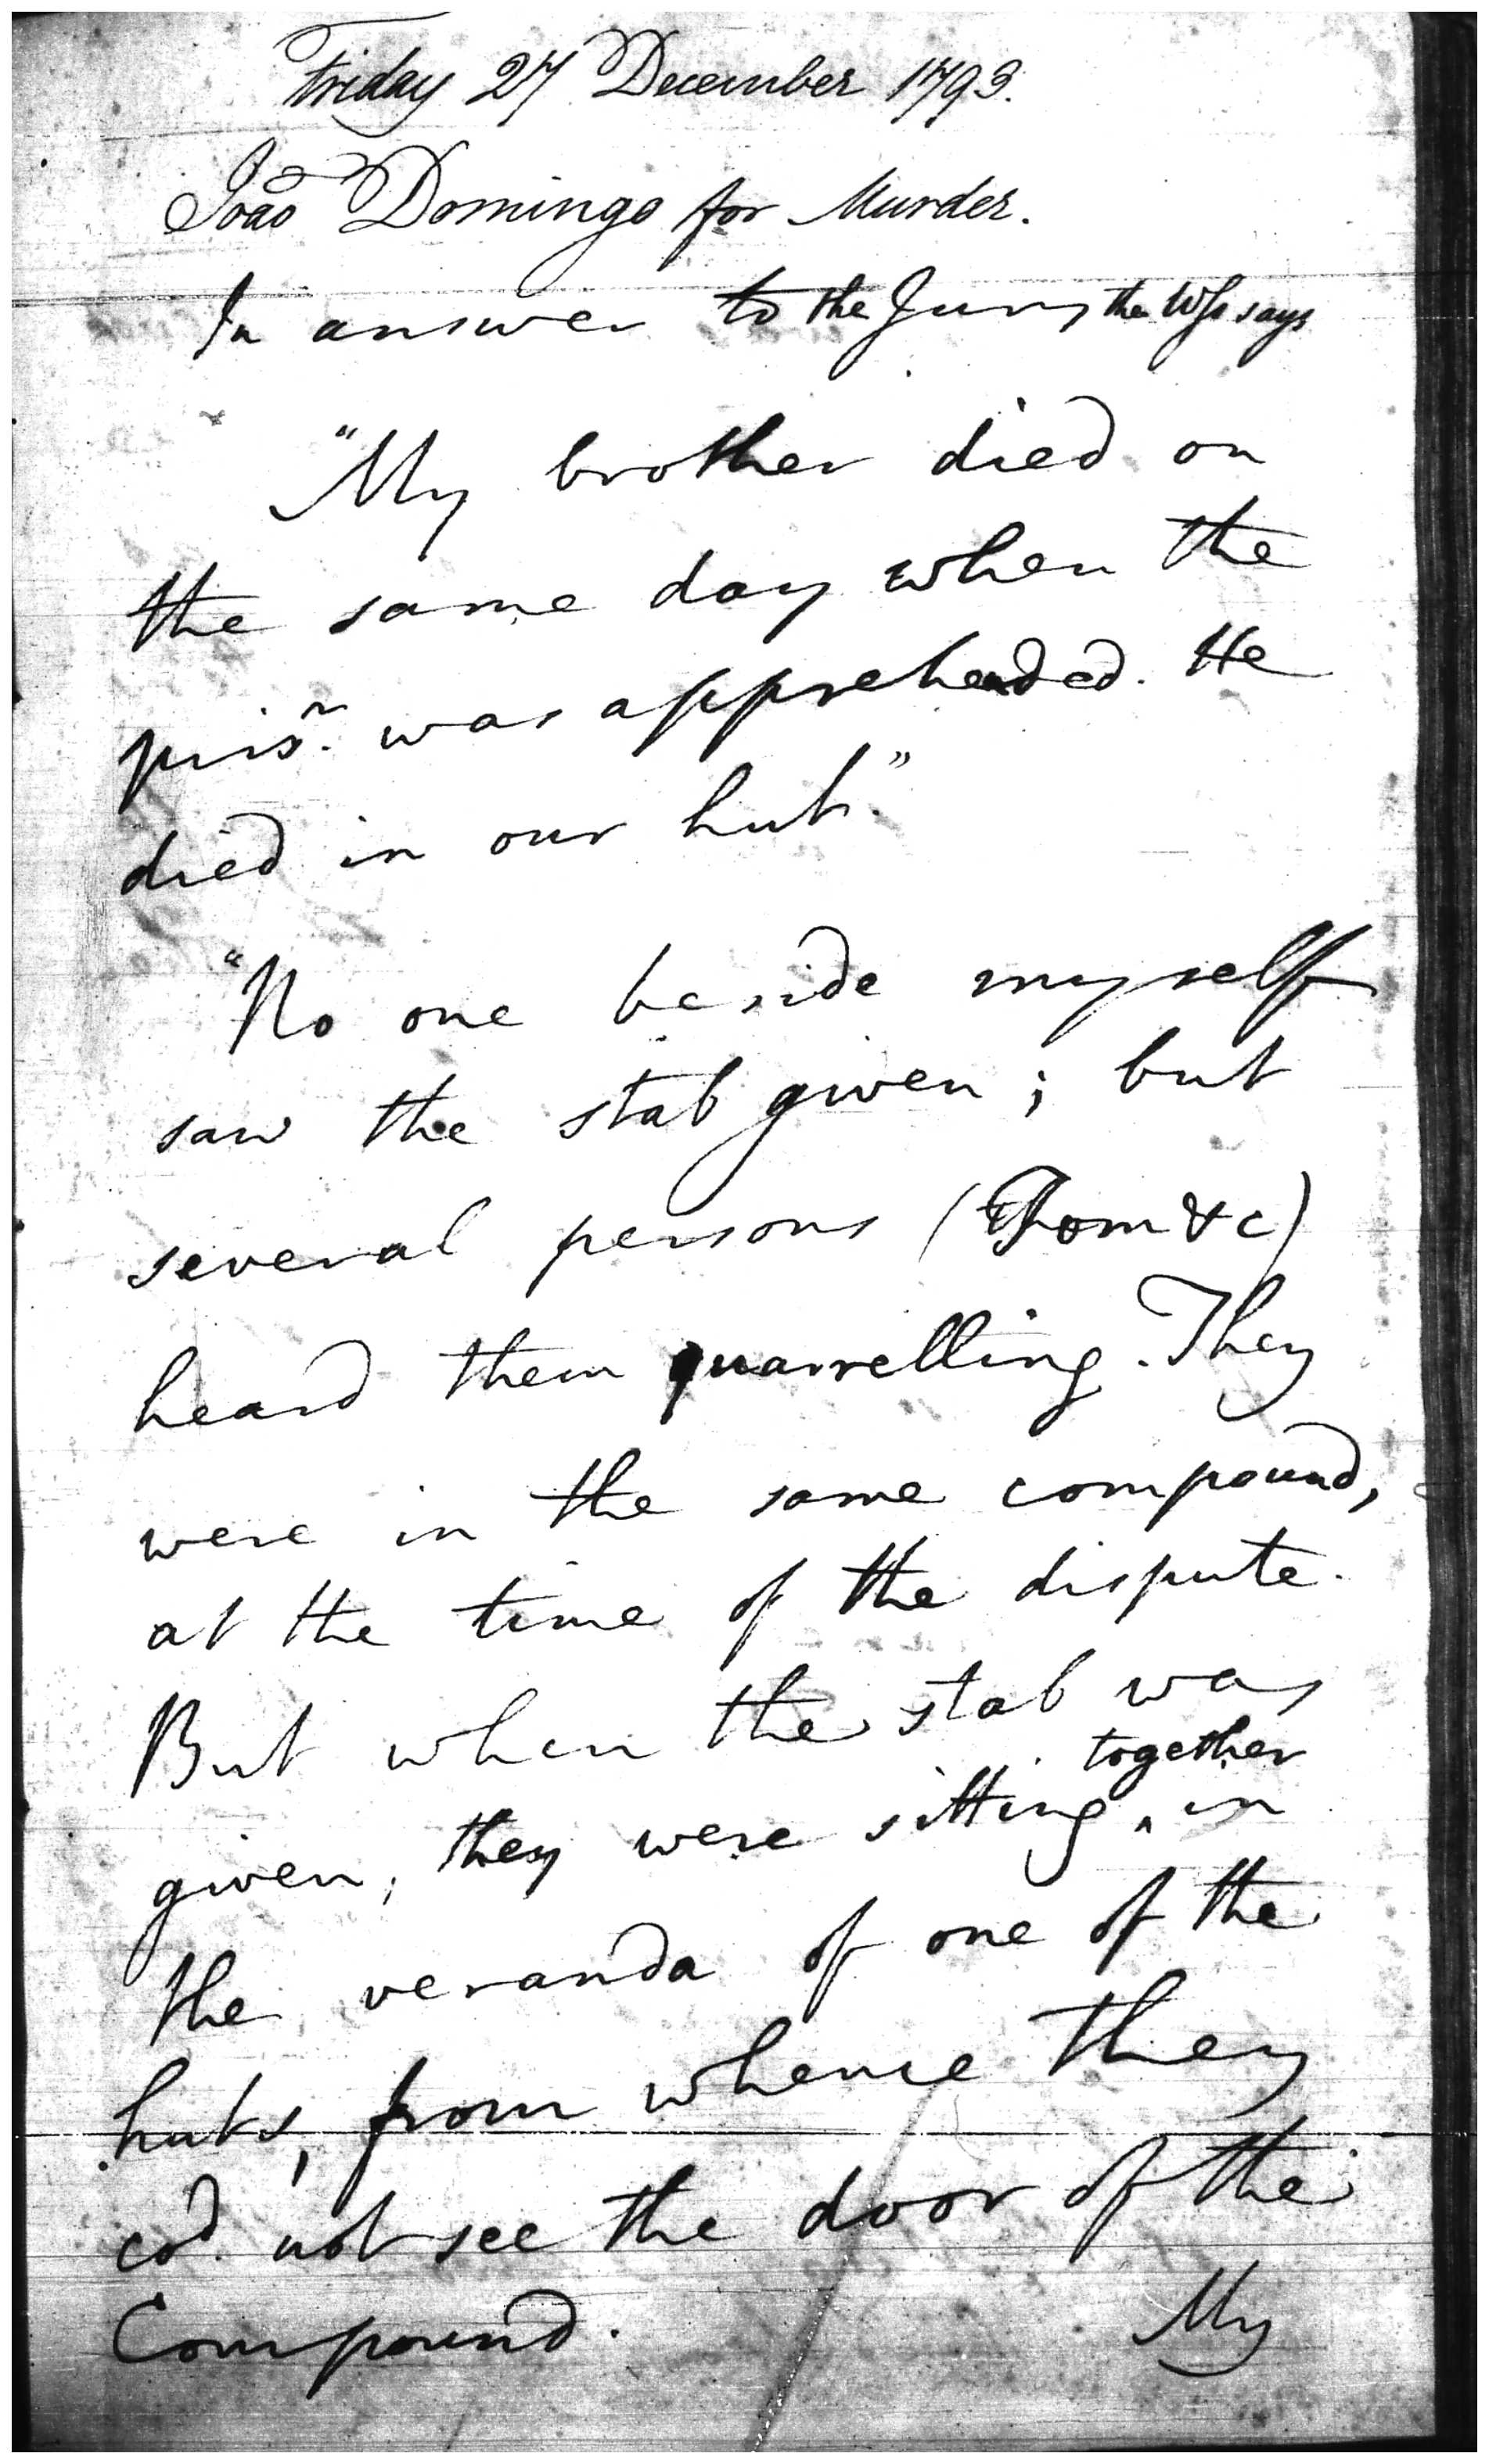 Friday 27 December 1793.
João Domingo for Murder.
In answer to the Jury the Wss says
"My brother died on
the same day when the
prisr. was apprehended. He
died in our hut."
"No one beside myself
saw the stab given; but
several persons (Thom &c)
heard them quarrelling. They
were in the same compound,
at the time of the dispute.
But when the stab was
together
given, they were sitting ^ in
the veranda of one of the
huts, from whence they
cod. not see the door of the
Compound.
My